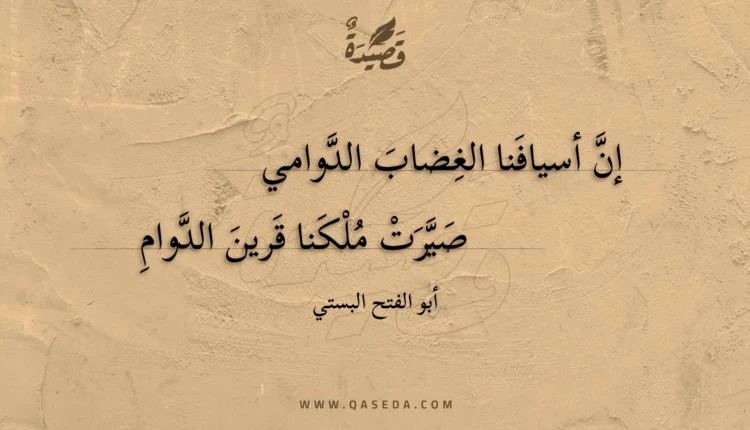 قَصِيدَةٌ
إنَّ أسيافَنا الغِضابَ الدَّوامي
صَيَّرَتْ مُلْكَنا قَرينَ الدَّوامِ
أبو الفتح البستي
WWW.QASEDA.COM